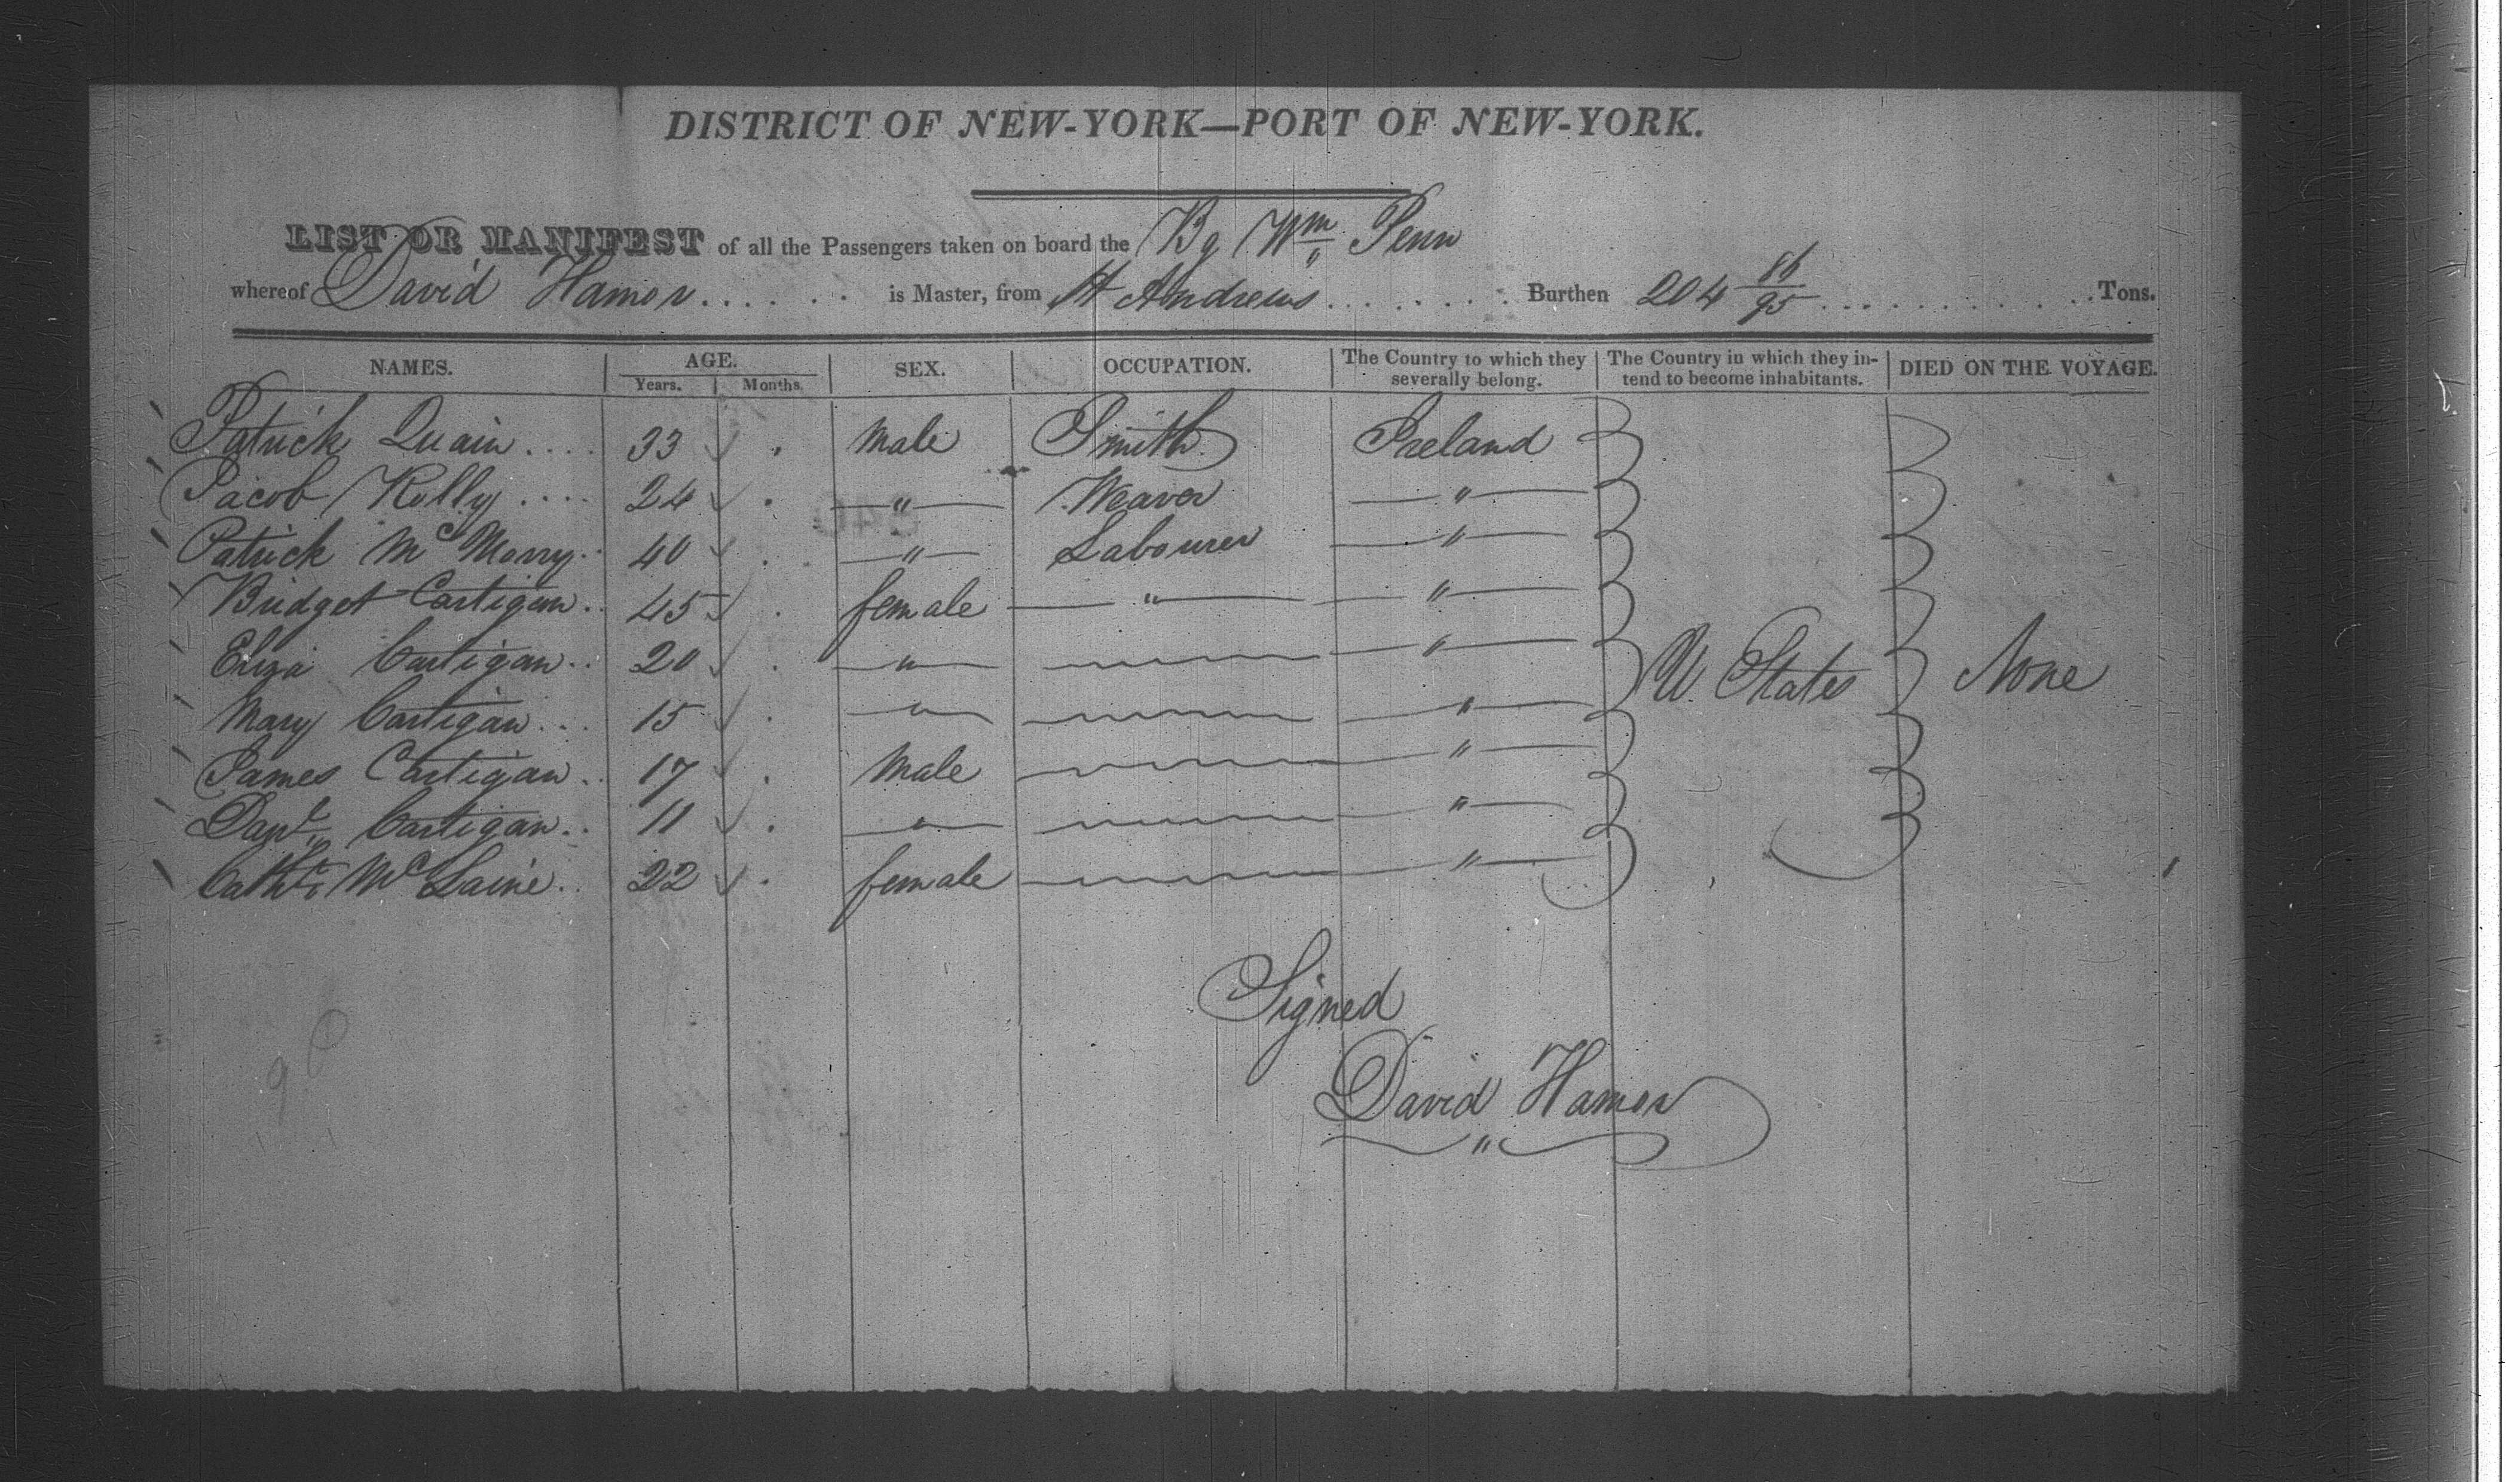 DISTRICT OF NEW-YORK—PORT OF NEW-YORK.
LIST OR MANIFEST of all the Passengers taken on board the Bg Wm Penn
whereof David Hamor is Master, from St Andrews Burthen 204 86/95 Tons.
NAMES. AGE. SEX. OCCUPATION. The Country to which they severally belong. The Country in which they intend to become inhabitants. DIED ON THE VOYAGE.
Years. Months.
Patrick Quain.... 33 Male Smith Ireland
Jacob Kelly.... 24 " Weaver "
Patrick McMorry.. 40 " Labourer "
Bridget Cartigan.. 45 female " "
Eliza Cartigan.. 20 " "
U States None
Mary Cartigan... 15 " "
James Cartigan.. 17 Male "
Danl Cartigan.. 11 " "
Cathe McLaine.. 22 female "
Signed
David Hamor
"